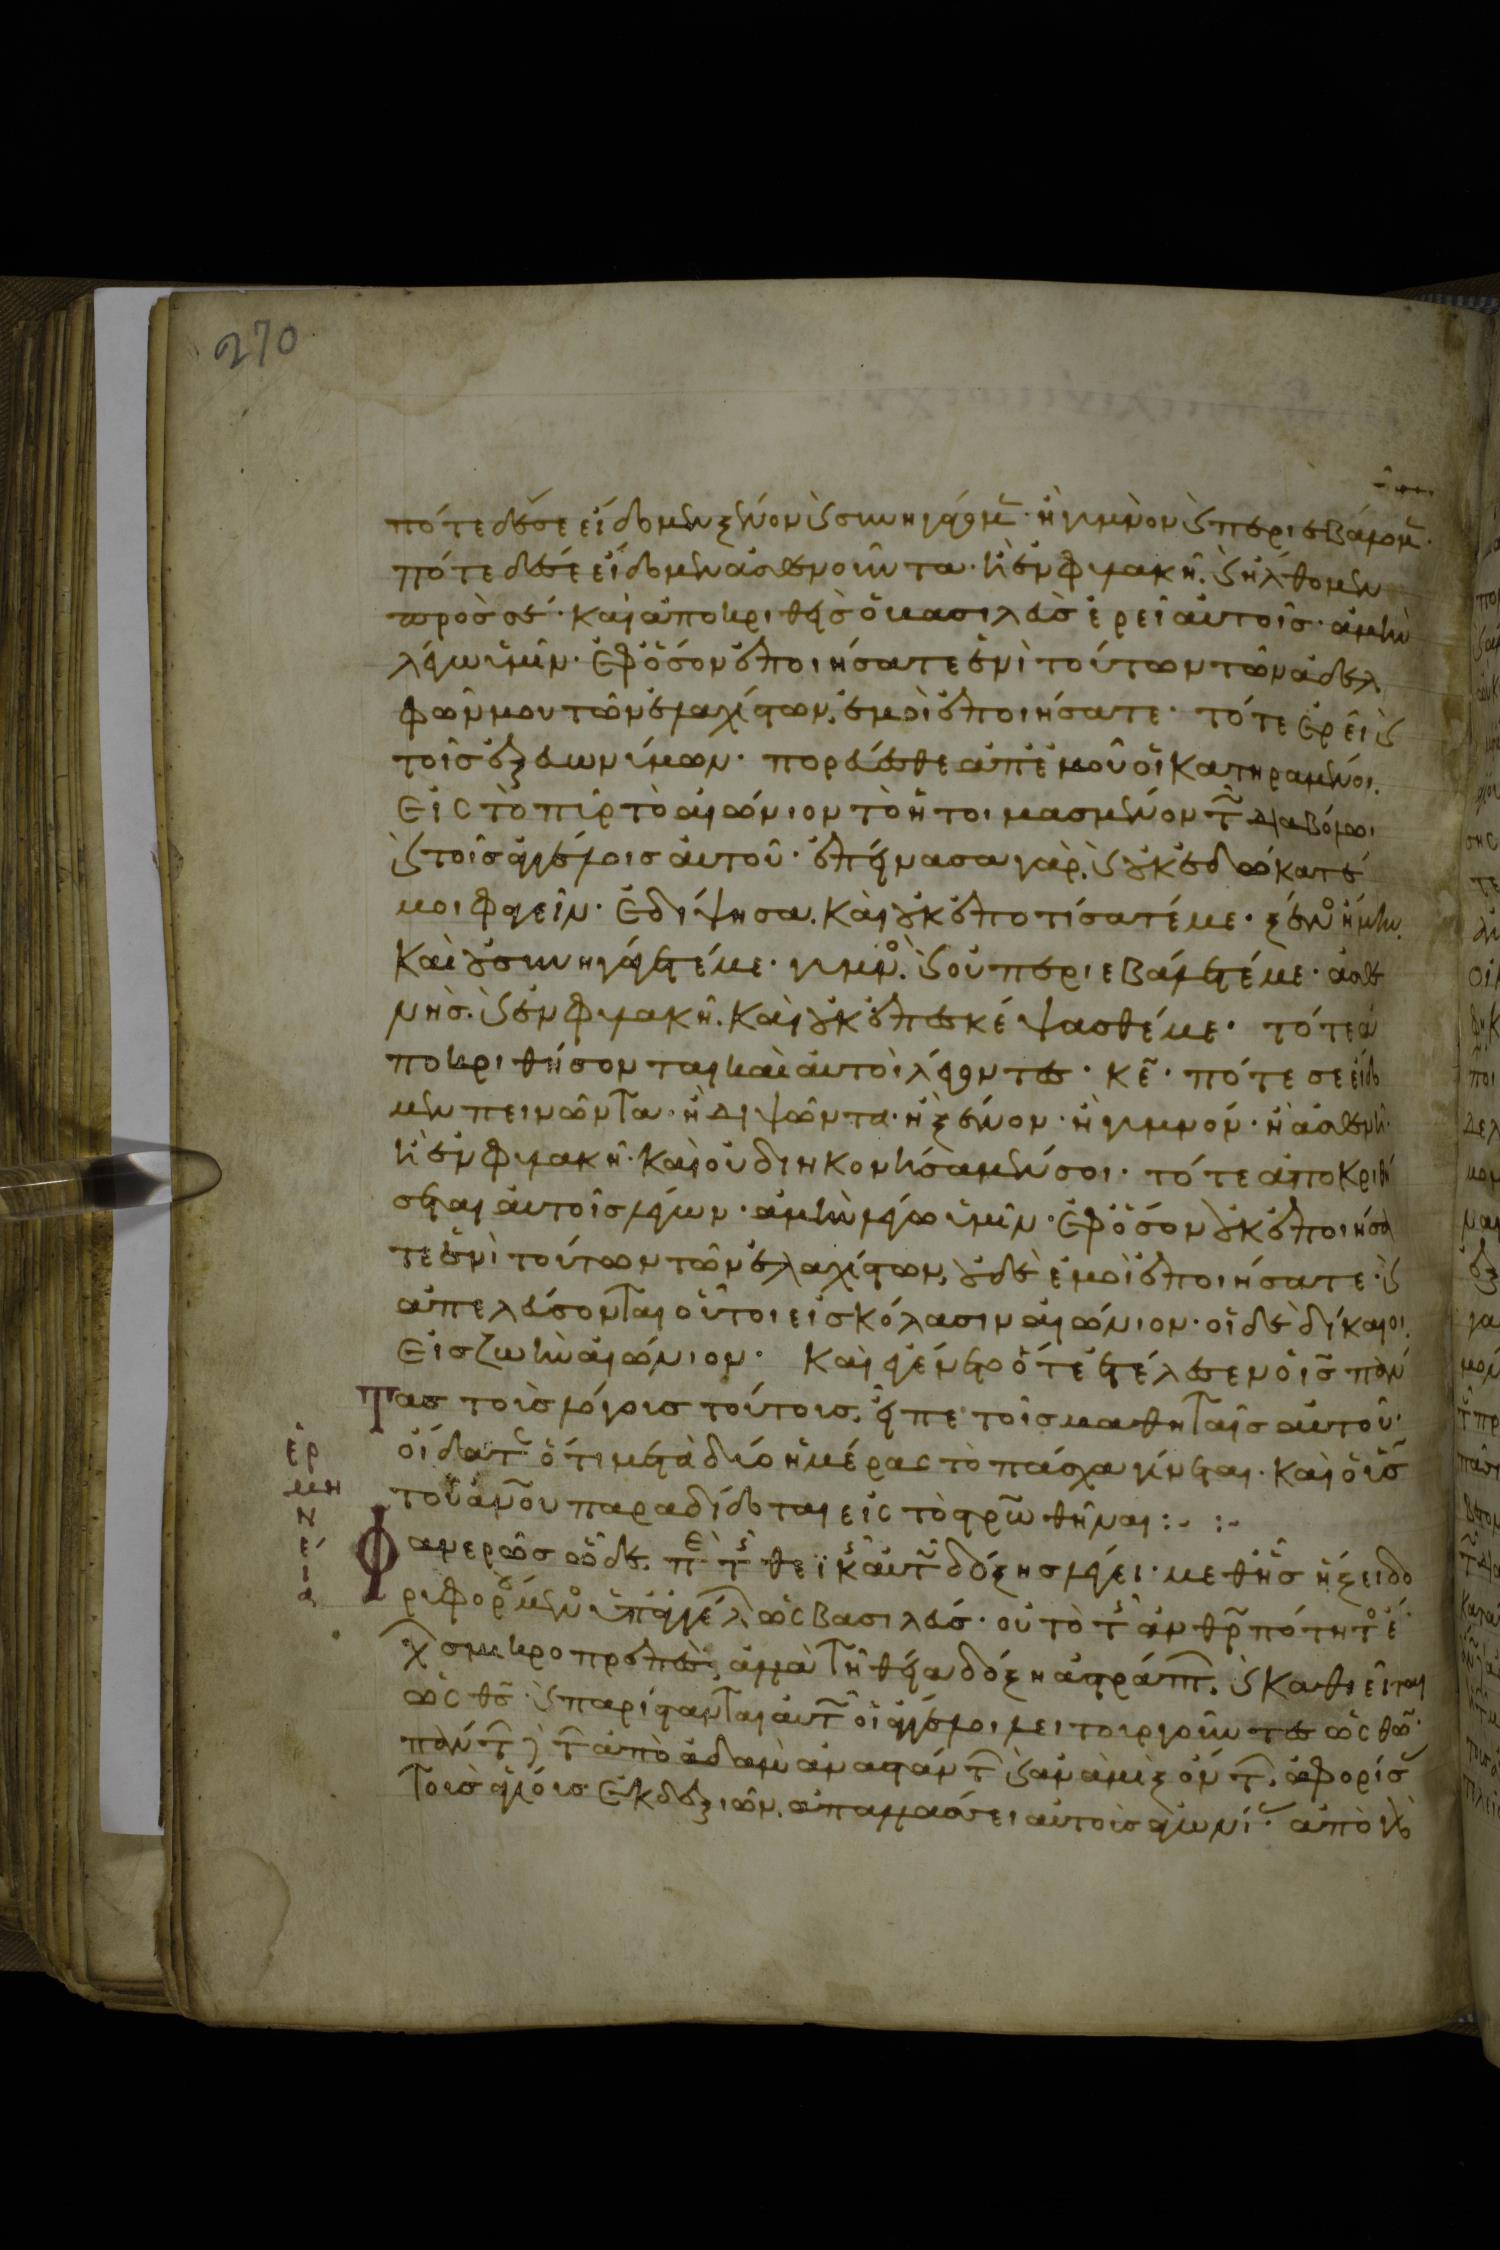 270
πότε δέ σε εἴδομεν ξένον ϗ συνηγάγομεν· ἢ γυμνὸν ϗ περιεβάλομεν·
πότε δέ σε εἴδομεν ἀσθενοῦντα· ἢ ἐν φυλακῆ. ϗ ἤλθομεν
πρὸς σέ· καὶ ἀποκριθεὶς ὁ βασιλεὺς ἐρεῖ αὐτοῖς· ἀμὴν
λέγω ὑμῖν· ἐφ ὅσον ἐποιήσατε ἑνὶ τούτων τῶν ἀδελ
φῶν μου τῶν ἐλαχίστων, ἐμοὶ ἐποιήσατε· τότε ἐρεῖ ϗ
τοῖς ἐξ εὐωνύμων· πορεύεσθε ἀπ ἐμοῦ οἱ κατηραμένοι.
εἰς τὸ πῦρ τὸ αἰώνιον τὸ ἡτοιμασμένον τῶ διαβόλωι
ϗ τοῖς ἀγγέλοις αὐτοῦ· ἐπείνασα γὰρ, ϗ οὐκ ἐδώκατέ
μοι φαγεῖν· ἐδίψησα. καὶ οὐκ ἐποτίσατέ με· ξένος ἤμην.
καὶ οὐ συνηγάγετέ με· γυμνός. ϗ οὐ περιεβάλετέ με· ἀσθε
νὴς. ϗ ἐν φυλακῆ. καὶ οὐκ ἐπεσκέψασθέ με· τότε ἀ
ποκριθήσονται καὶ αὐτοὶ λέγοντες· κε· πότε σε εἴδο
μεν πεινῶντα· ἢ διψῶντα· ἢ ξένον· ἢ γυμνόν· ἢ ἀσθενῆ·
ἢ ἐν φυλακῆ· καὶ οὐ διηκονήσαμέν σοι· τότε ἀποκριθή
σεται αὐτοῖς λέγων· ἀμὴν λέγω ὑμῖν· ἐφ ὅσον οὐκ ἐποιήσα
τε ἑνὶ τούτων τῶν ἐλαχίστων, οὐδὲ ἐμοὶ ἐποιήσατε· ϗ
ἀπελεύσονται οὗτοι εἰς κόλασιν αἰώνιον· οἱ δὲ δίκαιοι
εἰς ζωὴν αἰώνιον· καὶ ἐγένετο ὅτε ἐτέλεσεν ὁ ις πάν
τας τοὺς λόγους τούτους, εἶπε τοῖς μαθηταῖς αὐτοῦ·
οἴδατε ὅτι μετὰ δύο ἡμέρας τὸ πάσχα γίνεται· καὶ ὁ υς
τοῦ ανου παραδίδοται εἰς τὸ σταυρωθῆναι :- :-
ἑρ
μη
ν
εί
α
Φανερῶς ὧδε. περὶ τῆς θεϊκῆς αὐτοῦ δόξης λέγει· μεθ ἧς ἥξει δο
ρυφορούμενος ὑπ ἀγγέλων ὡς βασιλεύς· οὐ τὸ τῆς ἀνθρωπότητος ἔ
χων σμικροπρεπὲς, ἀλλὰ τῆ θεία δόξη ἀστράπτων. ϗ καθιεῖται
ὡς θς· ϗ παρίστανται αὐτῶ οἱ ἄγγελοι λειτουργοῦντες ὡς θω·
τοὺς ἁγίους ἐκ δεξιῶν, ἀπαλλάσσει αὐτοὺς ἀγωνίας· ἀπὸ γὰρ